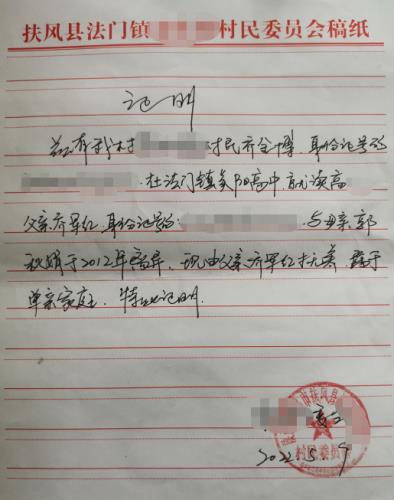 扶风县法门镇 村民委员会稿纸
证明
兹有我村 村民齐全博,身份证号码
在法门镇 高中,就读高
父亲齐军红,身份证号码: 与母亲郭
秋娟于2012年离异,现由父亲齐军红抚养,属于
单亲家庭,特此证明.
市扶风县
村民委员
2022.5.9